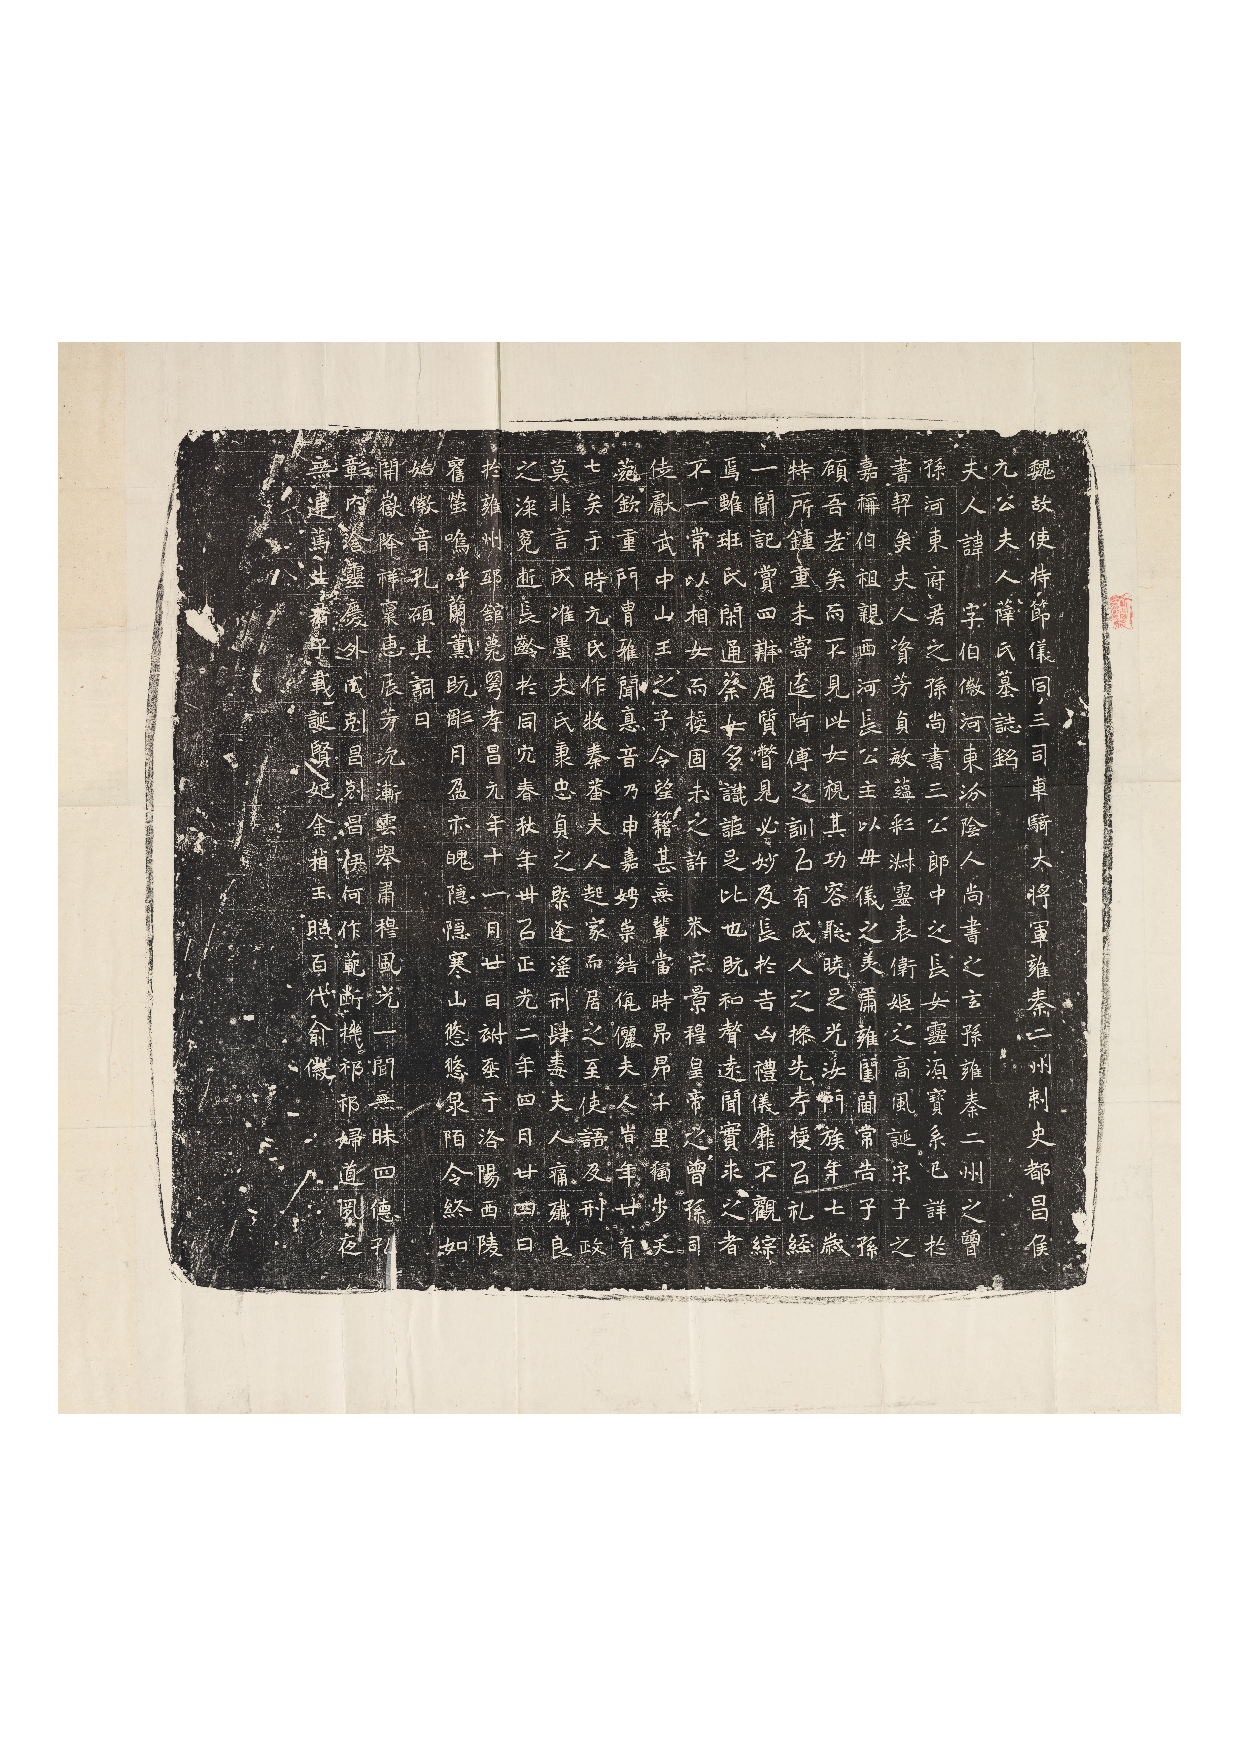 魏故使持節儀同三司車騎大將軍雍秦二州刺史都昌侯
元公夫人薛氏墓誌銘
夫人諱 字伯徽河東汾陰人尚書之玄孫雍秦二州之曾
孫河東府君之孫尚書三公郎中之長女靈源寶系已詳於
書契矣夫人資芳貞敏蘊彩淋靈表衛姬之高風誕宋子之
嘉稱伯祖親西河長公主以母儀之美肅雍閨閫常告子孫
顧吾老矣而不見此女視其功容聡曉足光汝門族年七歲
特所鍾重未嘗違阿傅之訓及有成人之操先考授以礼經
一聞記賞四辨居質瞥見必妙及長於吉凶禮儀靡不觀綜
焉雖班氏閑通蔡女多識詎足比也既和聲遠聞實求之者
不一常以相女而授固未之許 恭宗景穆皇帝之曾孫司
徒獻武中山王之子令望籍甚無輩當時昂昂千里獨步天
苑欽重門胄雅聞惪音乃申嘉娉崇結伉儷夫人昔年廿有
七矣于時元氏作牧秦蕃夫人起家而居之至使語及刑政
莫非言成准墨夫氏秉忠貞之槩逢淫刑肆毒夫人痛殲良
之深冤慙長齡於同穴春秋年卅以正光二年四月廿四日
於雍州邸館薨粤孝昌元年十一月廿日祔塟于洛陽西陵
舊塋嗚呼蘭薰既彫月盈亦魄隱隱寒山悠悠泉陌令終如
始徽音孔碩其詞曰
開嶽降祥稟惠辰芳沉漸雲舉肅穆風光一聞無昧四德孔
彰内洽靈慶外成剋昌剋昌伊何作範断機祁祁婦道夙夜
無違蔦生君子載誕賢妃金相玉照百代俞徽